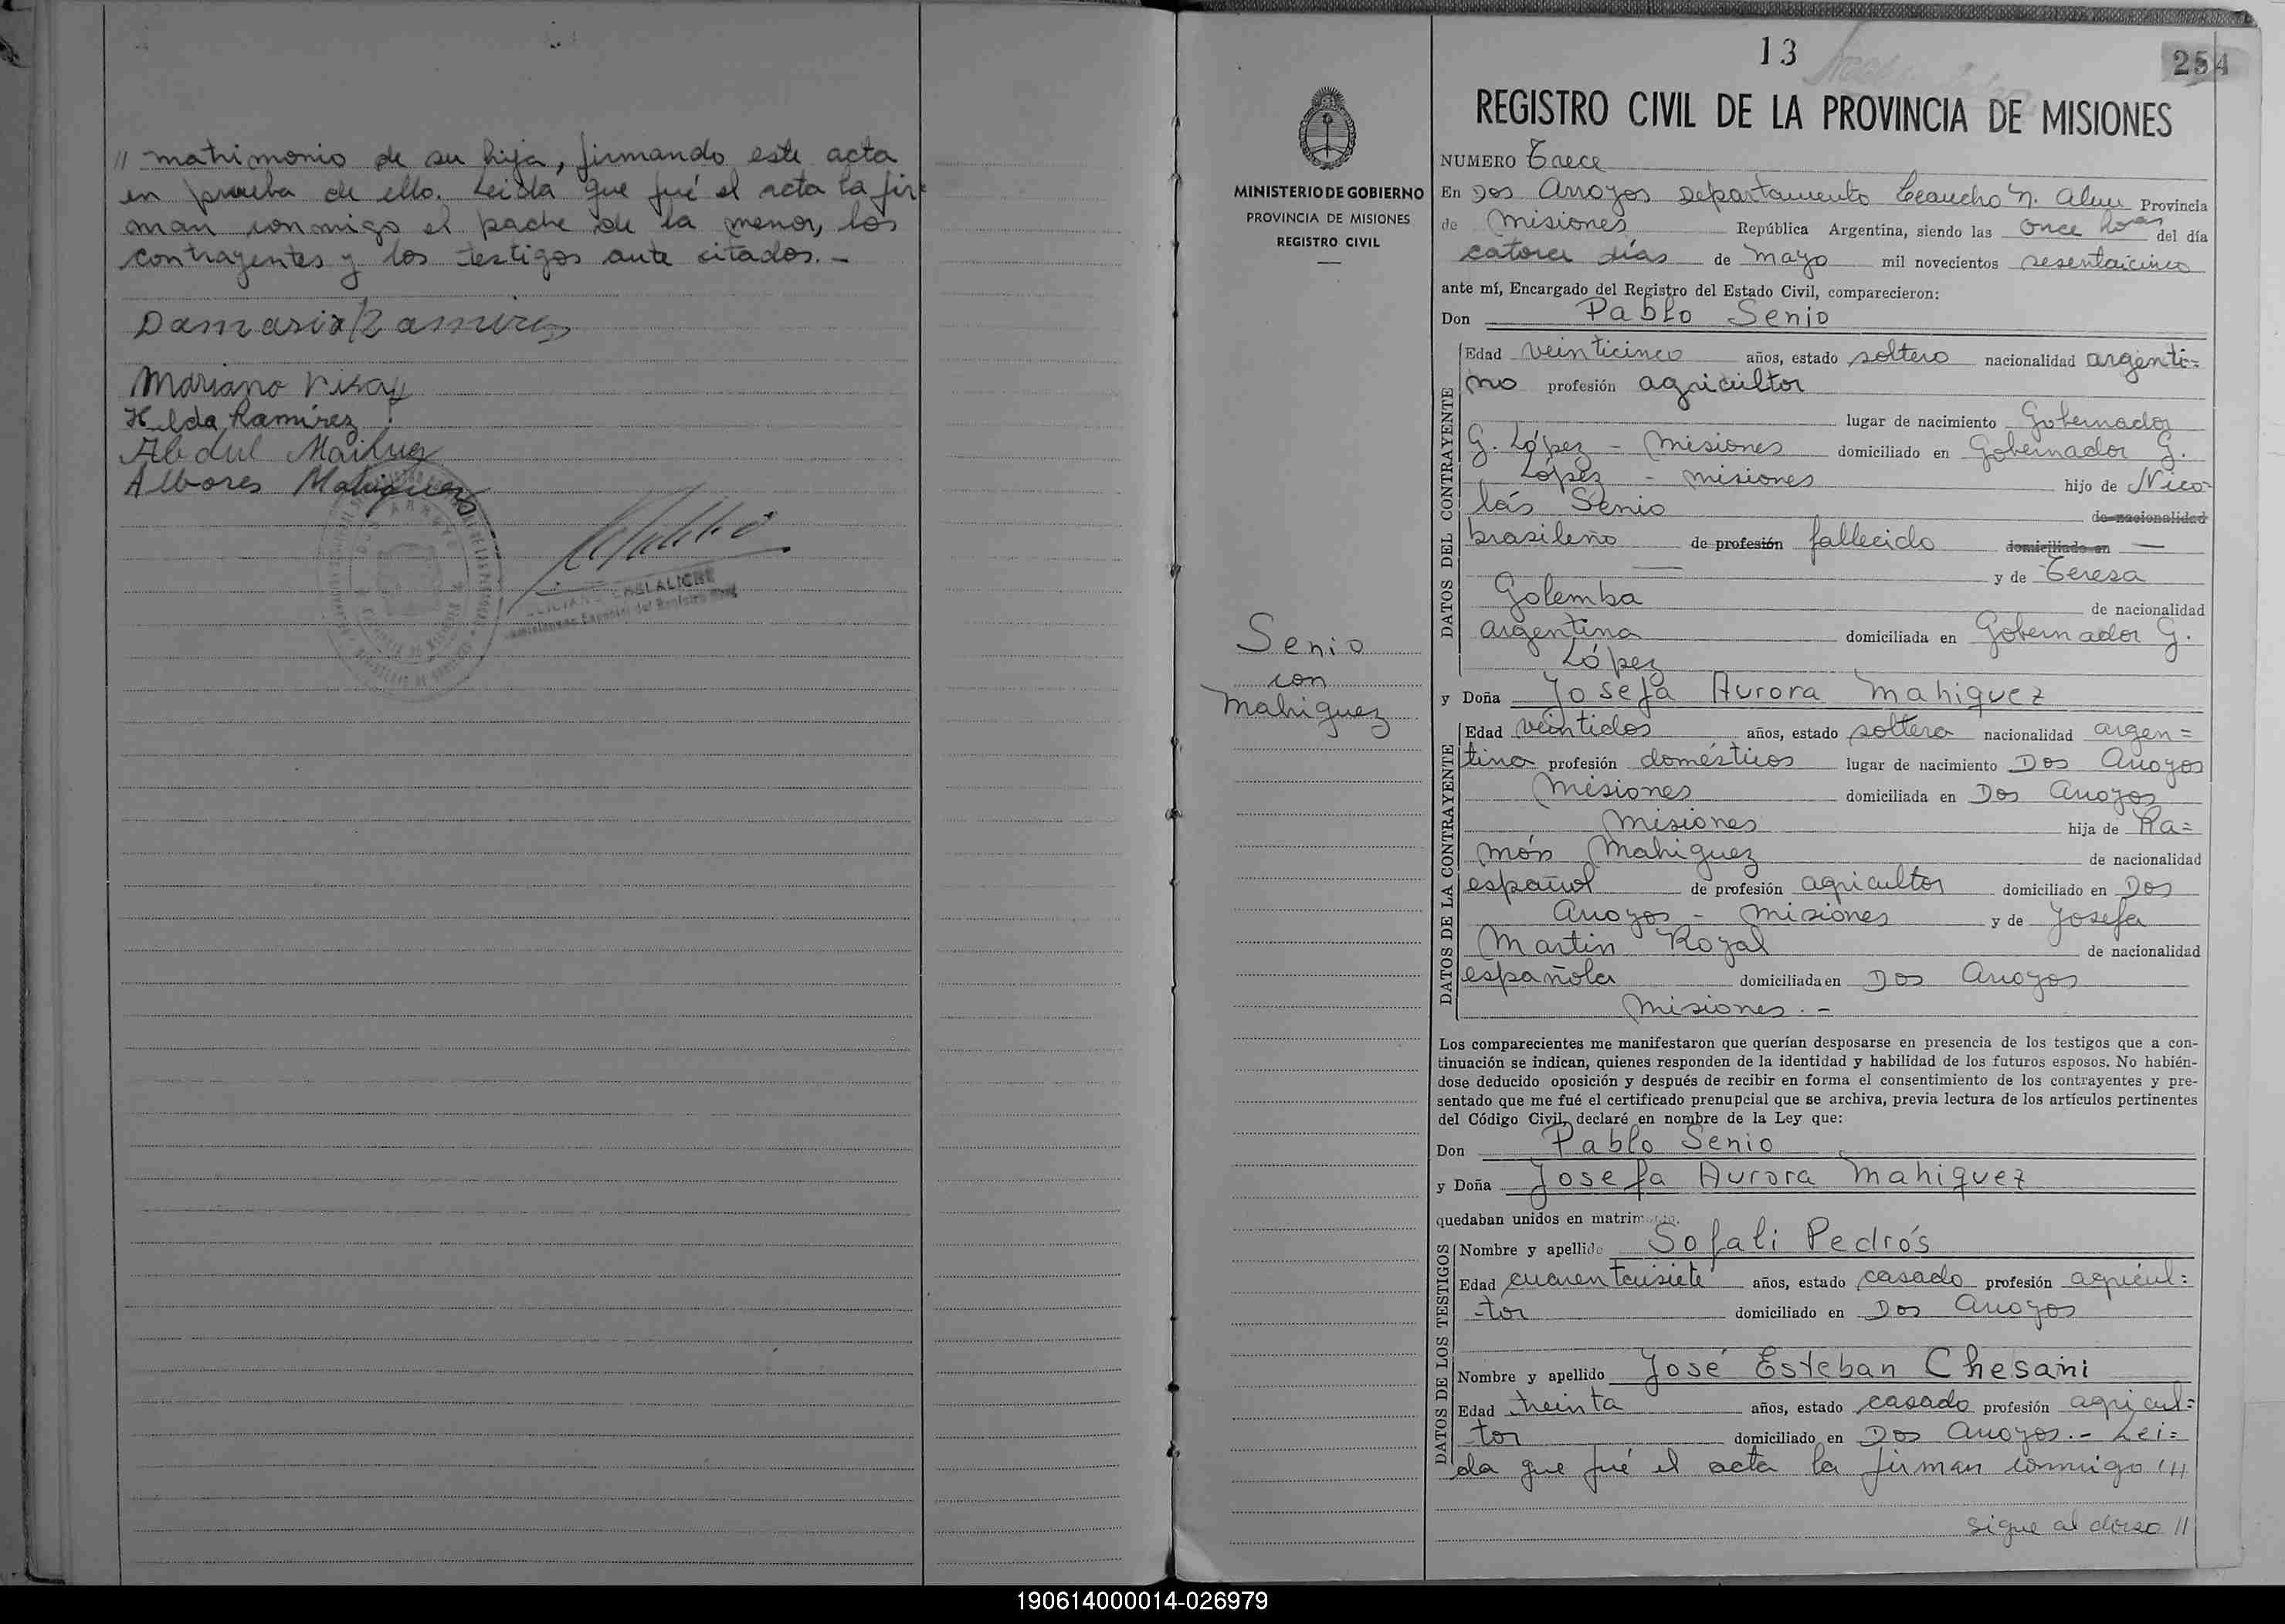 // matrimonio de su hija, firmando este acta
en prueba de ello. Leida que fué el acta la fir=
man conmigo el padre de la menor, los
contrayentes y los testigos ante citados. -
Ramirez
Mariano
Hilda Ramírez
Abdul
Albores
13
254
REGISTRO CIVIL DE LA PROVINCIA DE MISIONES
MINISTERIO DE GOBIERNO
PROVINCIA DE MISIONES
REGISTRO CIVIL
NUMERO Trece
En Dos Arroyos Departamento Leandro N. Alem Provincia
de Misiones República Argentina, siendo las once horas del día
catorce días de mayo mil novecientos sesentaicinco
ante mí, Encargado del Registro del Estado Civil, comparecieron:
Don Pablo Senio
DATOS DEL CONTRAYENTE
Edad veinticinco años, estado soltero nacionalidad argenti=
no profesión agricultor
lugar de nacimiento Gobernador
G. López - Misiones domiciliado en Gobernador G.
López - Misiones hijo de Nico-
lás Senio de nacionalidad
brasileño de profesión fallecido domiciliado en —
y de Teresa
Golemba de nacionalidad
argentina domiciliada en Gobernador G.
López
Senio
con
Mahiquez
y Doña Josefa Aurora Mahiquez
DATOS DE LA CONTRAYENTE
Edad veintidos años, estado soltera nacionalidad argen=
tina profesión domésticos lugar de nacimiento Dos Arroyos
Misiones domiciliada en Dos Arroyos
Misiones hija de Ra=
món Mahiquez de nacionalidad
español de profesión agricultor domiciliado en Dos
Arroyos - Misiones y de Josefa
Martin Royal de nacionalidad
española domiciliada en Dos Arroyos
Misiones. -
Los comparecientes me manifestaron que querían desposarse en presencia de los testigos que a con-
tinuación se indican, quienes responden de la identidad y habilidad de los futuros esposos. No habién-
dose deducido oposición y después de recibir en forma el consentimiento de los contrayentes y pre-
sentado que me fué el certificado prenupcial que se archiva, previa lectura de los artículos pertinentes
del Código Civil, declaré en nombre de la Ley que:
Don Pablo Senio
y Doña Josefa Aurora Mahiquez
quedaban unidos en matrimonio.
DATOS DE LOS TESTIGOS
Nombre y apellido Sofali Pedrós
Edad cuarentaisiete años, estado casado profesión agricul=
tor domiciliado en Dos Arroyos
Nombre y apellido José Esteban Chesani
Edad treinta años, estado casado profesión agricul=
tor domiciliado en Dos Arroyos. - Lei=
da que fué el acta la firman conmigo ///
sigue al dorso //
190614000014-026979